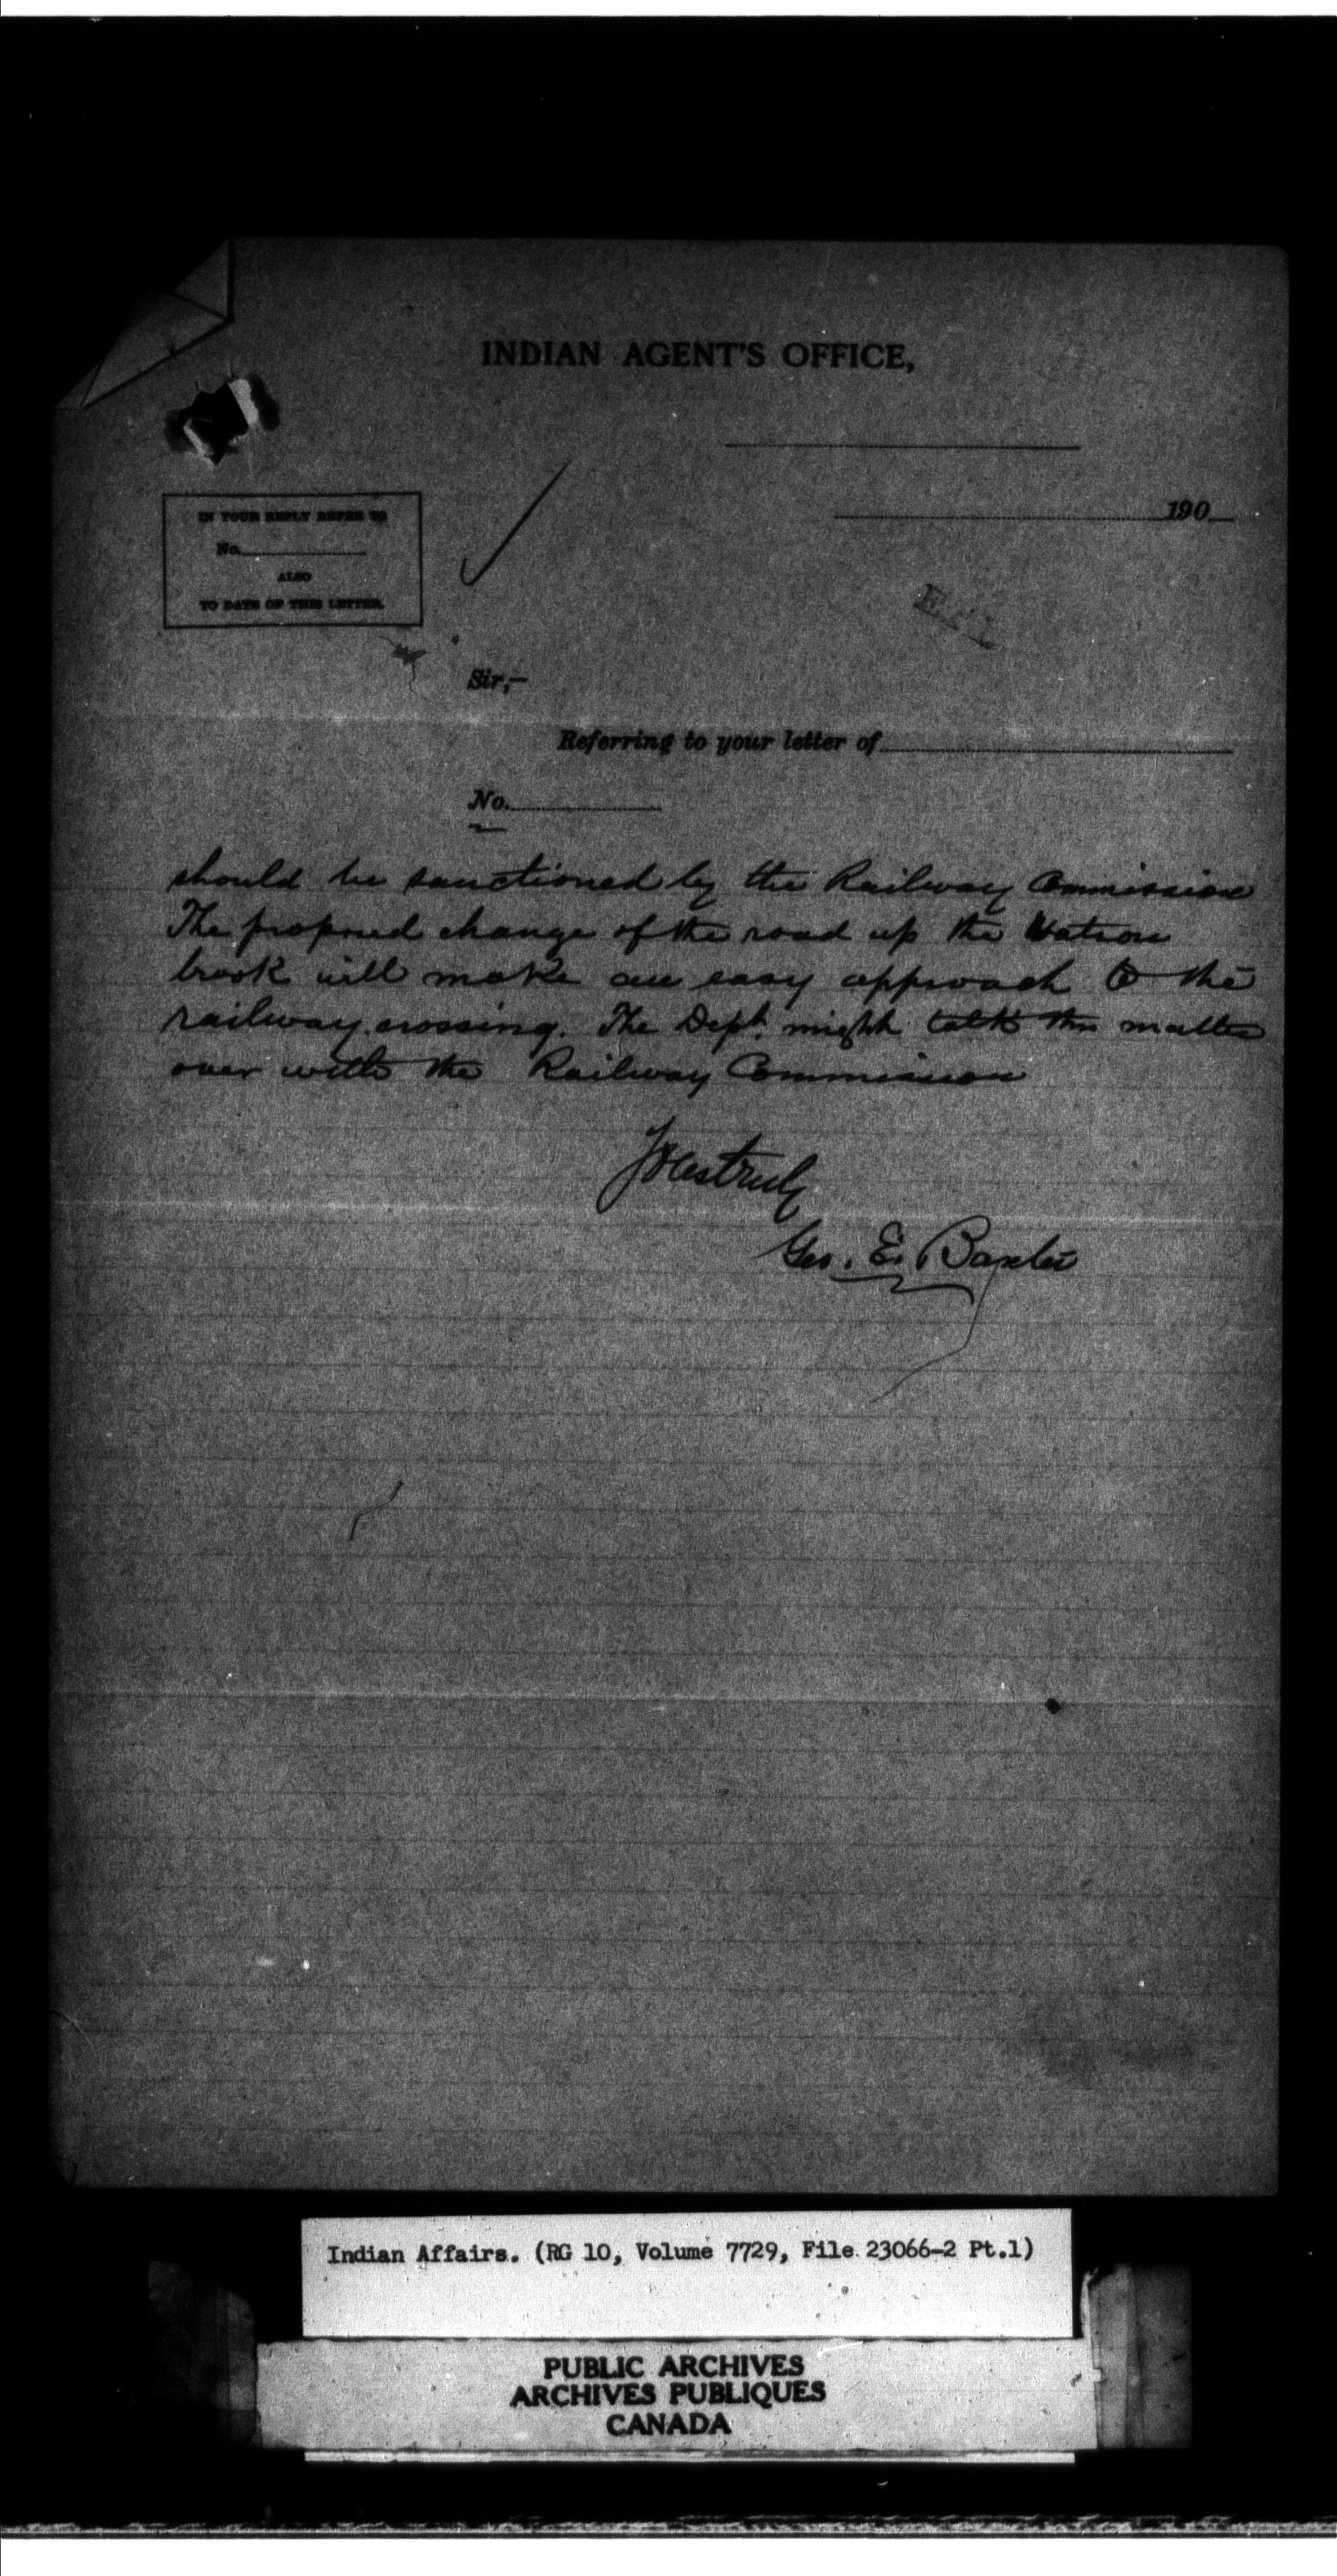 INDIAN AGENT'S OFFICE,
190
IN YOUR REPLY REFER TO
No.
ALSO
TO DATE OF THIS LETTER.
Sir,—
Referring to your letter of
No.
should be sanctioned by the Railway Commission
The proposed change of the road up the Watson
brook will make an easy approach to the
railway crossing. The Dept. might talk this matter
over with the Railway Commission
Yrs truly
Geo. E. Baxter
Indian Affairs. (RG 10, Volume 7729, File 23066-2 Pt.1)
PUBLIC ARCHIVES
ARCHIVES PUBLIQUES
CANADA